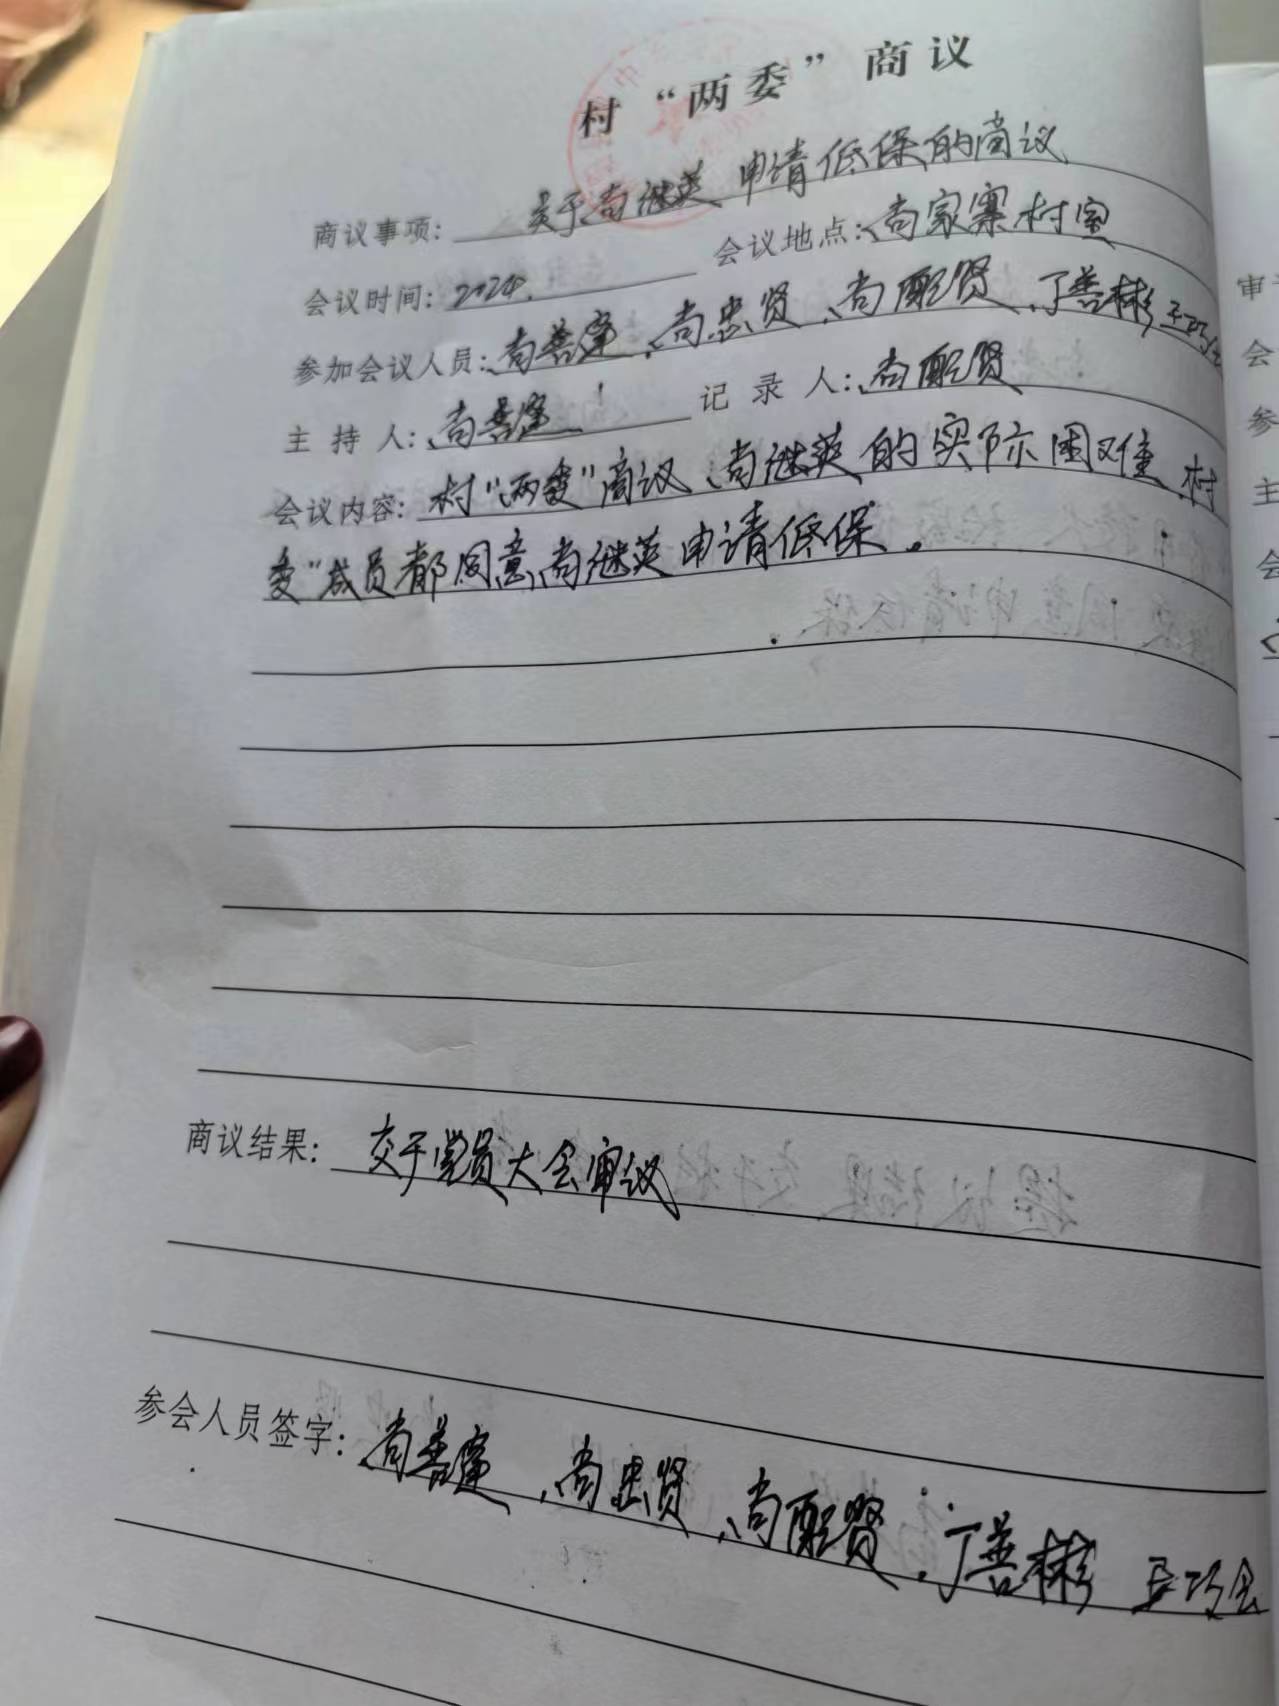 村“两委”商议
商议事项：关于尚继英申请低保的商议
会议时间：2024. 会议地点：尚家寨村室
参加会议人员：尚善军、尚忠贤、尚配贤、丁善彬
主持人：尚善军 记录人：尚配贤
会议内容：村“两委”商议、尚继英的实际困难、村
委”成员都同意尚继英申请低保。
商议结果：交于党员大会审议
参会人员签字：尚善军、尚忠贤、尚配贤、丁善彬
审
会
参
主
会